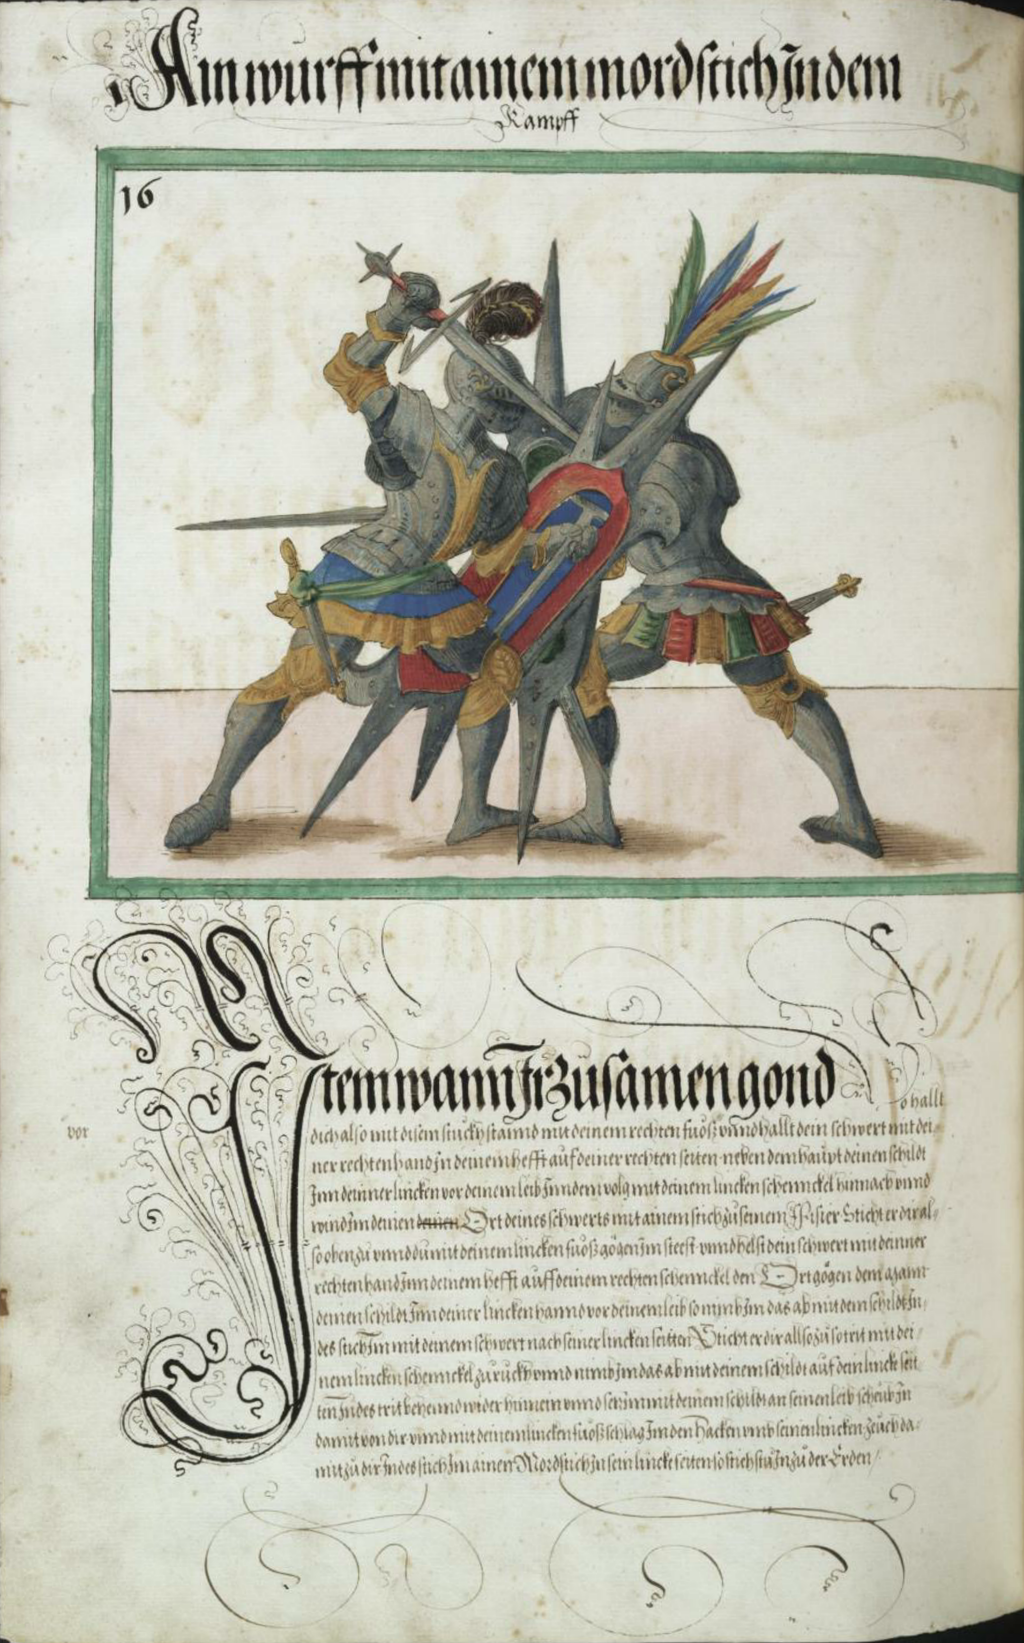 Ain wurff mit ainem mordstich In dem
Kampff
16
Item wann Ir zusamen gond so hallt
vor
dich also mit disem stuckh stannd mit deinem rechten fuoß vnnd hallt dein schwert mit dei-
ner rechten hand In deinem hefft auf deiner rechten seiten neben dem haupt deinen schildt
Inn deinner lincken vor deinem leib Inn dem volg mit deinem lincken schennckel hinnach vnnd
wind Im deinen deinen Ort deines schwerts mit ainem stich zu seinem Visier Sticht er dir al-
so oben zu vnnd du mit deinem lincken fuoß gögen Im steest vnnd helst dein schwert mit deinner
rechten hand Inn deinem hefft auff deinem rechten schennckel den Ort gögen dem mann
deinen schildt Inn deiner lincken hannd vor deinem leib so nimb Im das ab mit dem schildt In-
des stich Im mit deinem schwert nach seiner lincken seitten Sticht er dir allso zu so trit mit dei-
nem lincken schennckel zuruckh vnnd nimb Im das ab mit deinem schildt auf dein lincke seit-
ten Indes trit behennd wider hinnein vnnd setz Im mit deinem schildt an seinen leib scheub In
damit von dir vnnd mit deinem lincken fuoß schlag Im den hacken vmb seinen lincken zeuch da-
mit zu dir Indes stich Im ainen Mordstich In sein lincke seiten so stichstu In zu der Erden /